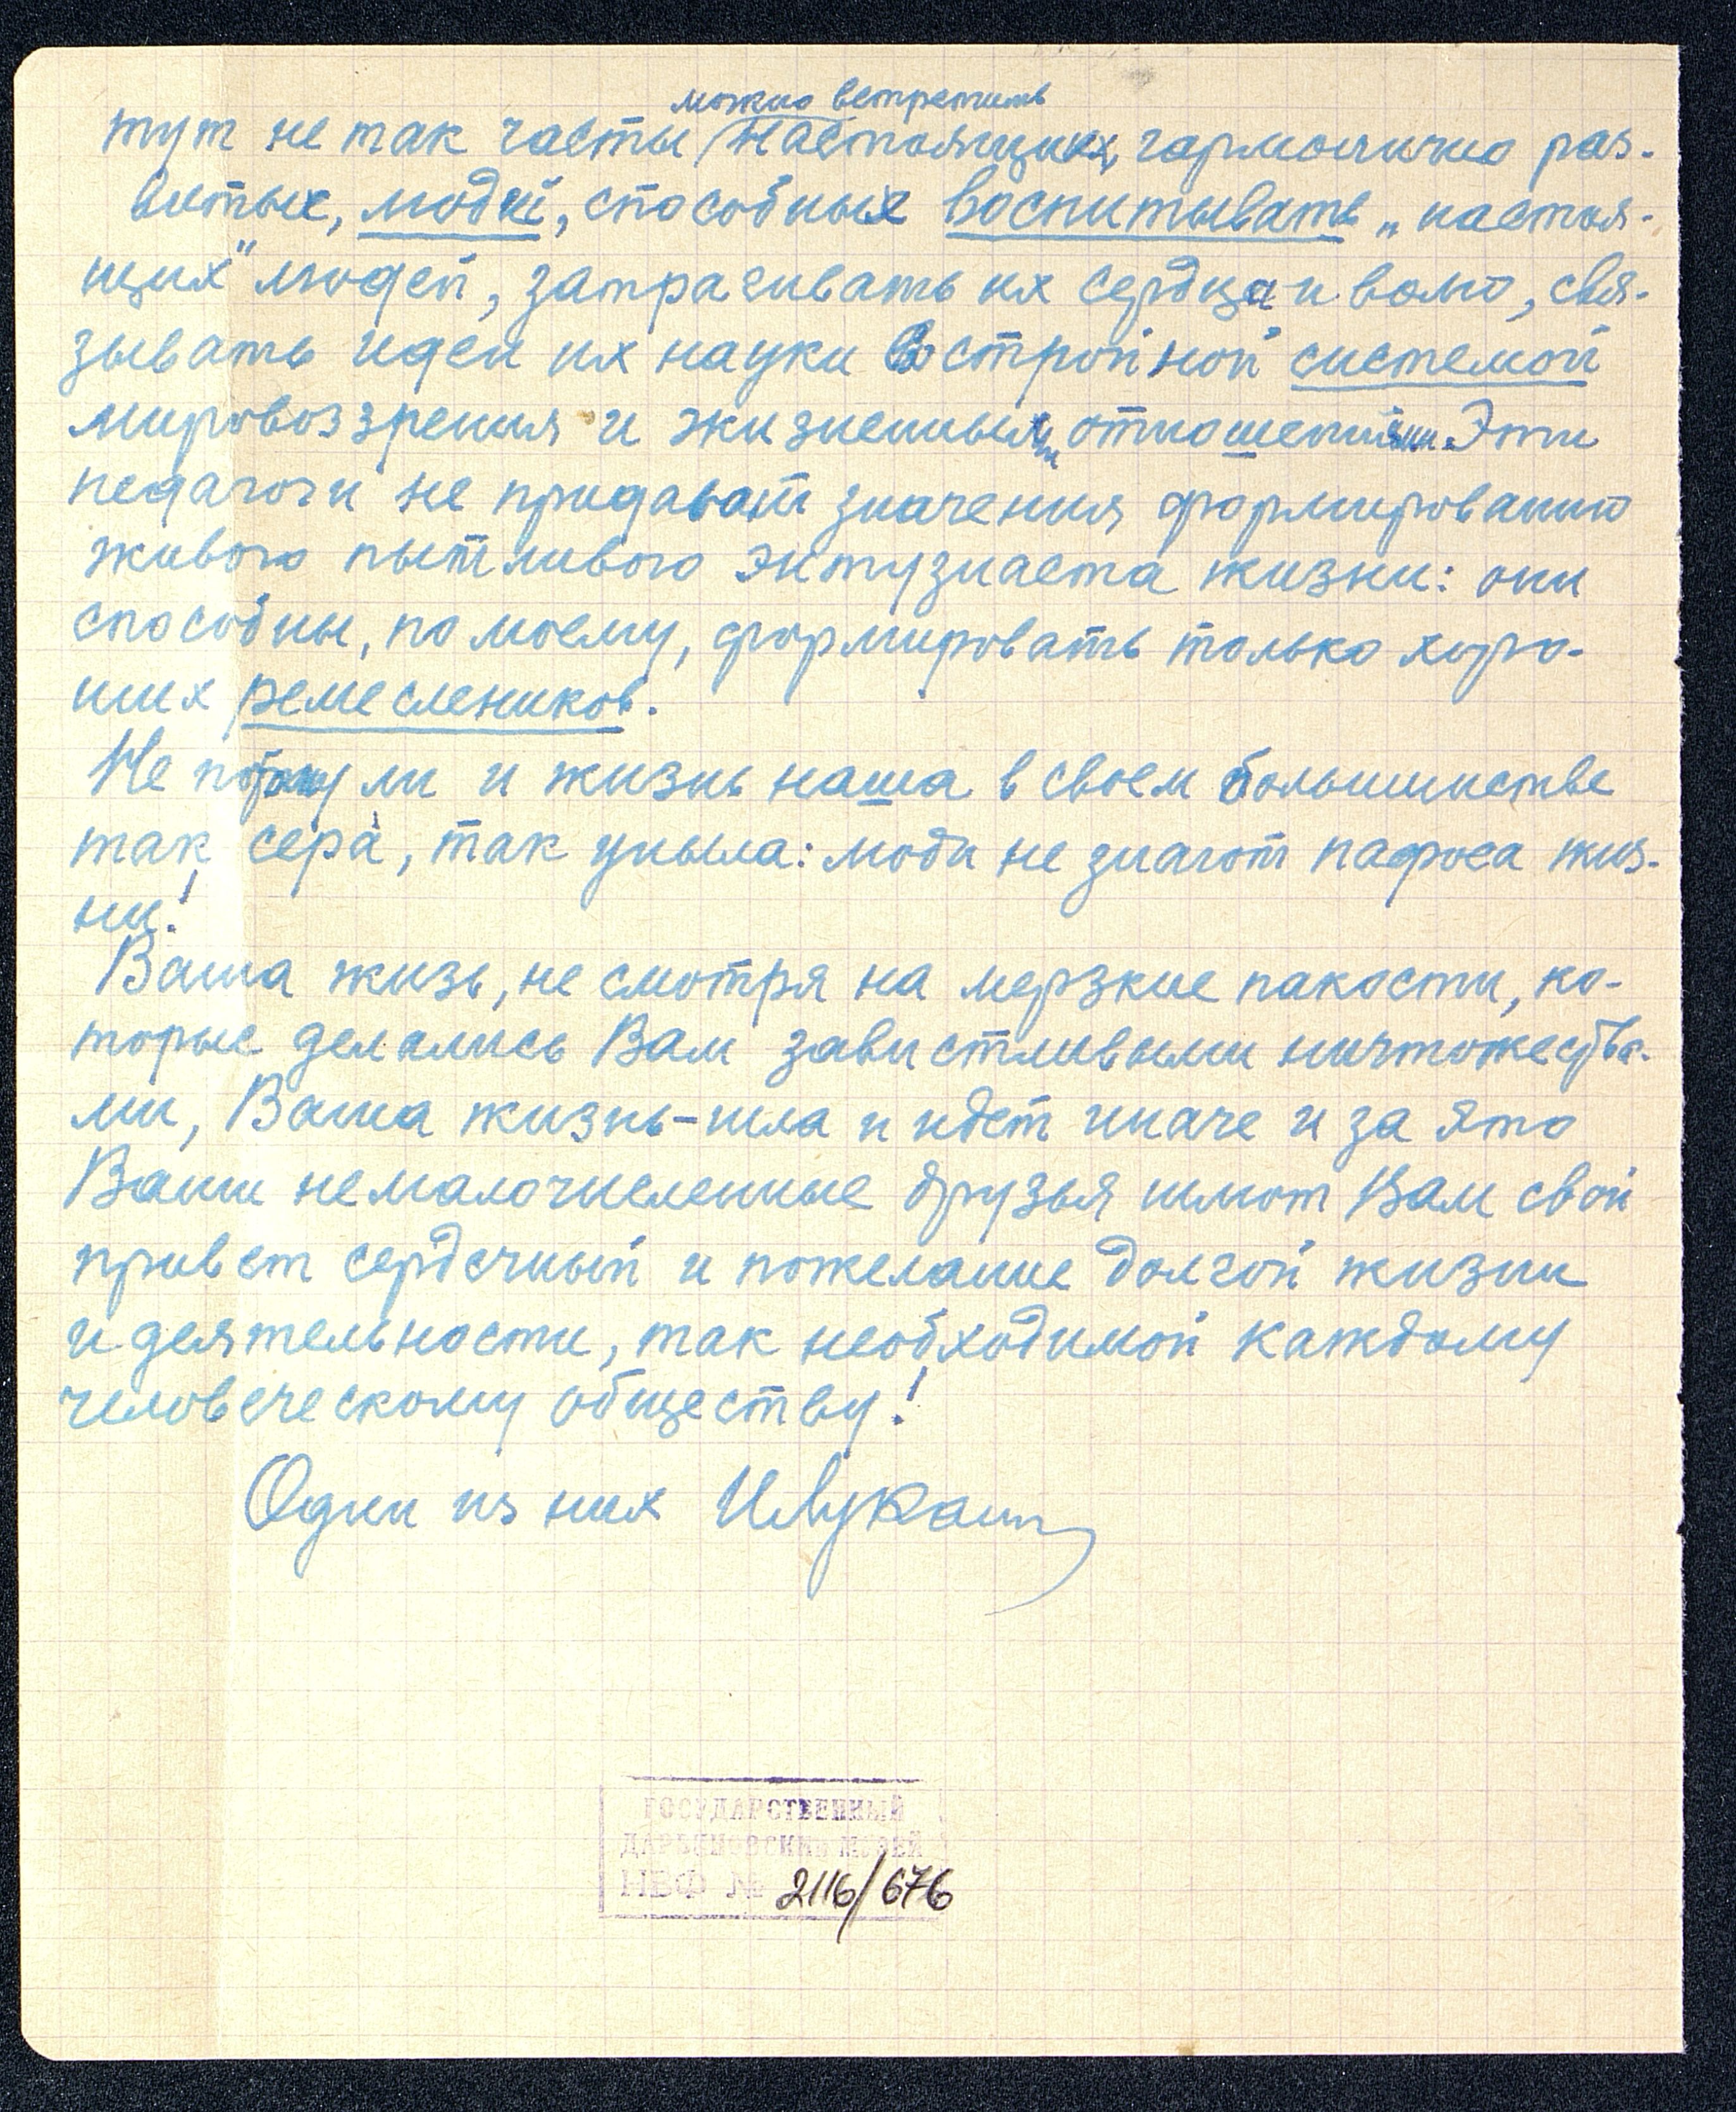 можно встретить
тут не так часты настоящих, гармонично раз-
витых, людей, способных воспитывать „настоя-
щих" людей, затрагивать их сердца и волю, свя-
зывать идеи их науки со стройной системой
мировоззрения и жизненными отношениями. Эти
педагоги не придают значения формированию
живого пытливого энтузиаста жизни: они
способны, по моему, формировать только хоро-
ших ремеслеников.
Не потому ли и жизнь наша в своем большинстве
так сера, так уныла: люди не знают пафоса жиз-
ни!
Ваша жизь, не смотря на мерзкие пакости, ко-
торые делались Вам завистливыми ничтожества-
ми, Ваша жизнь-шла и идет иначе и за это
Ваши немалочисленные друзья шлют Вам свой
привет сердечный и пожелание долгой жизни
и деятельности, так необходимой каждому
человеческому обществу!
Один из них
ГОСУДАРСТВЕННЫЙ
ДАРВИНОВСКИЙ МУЗЕЙ
НВФ № 2116/676